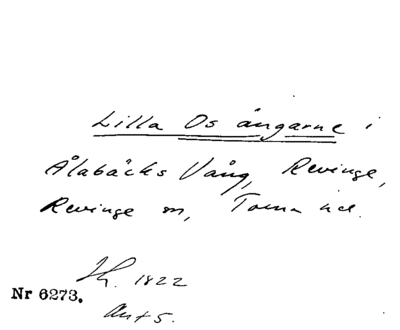 Lilla Os ängarne i
Ålabäcks Vång, Revinge,
Revinge sn, Torna hd.
Th. 1822
Nr 6273.
Ant 5.